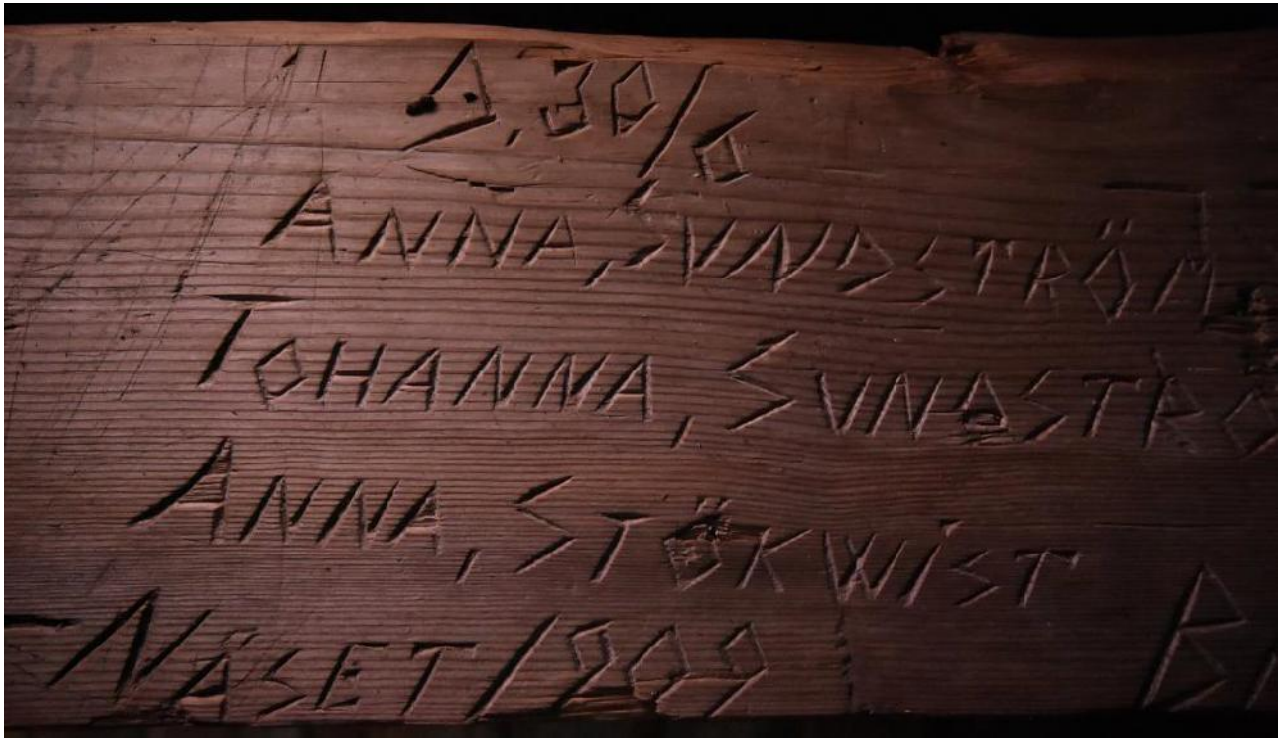 D. 30/6
ANNA, SUNDSTRÖM
JOHANNA, SUNDSTRO
ANNA, STÖKWiST
NÄSET 1909 B